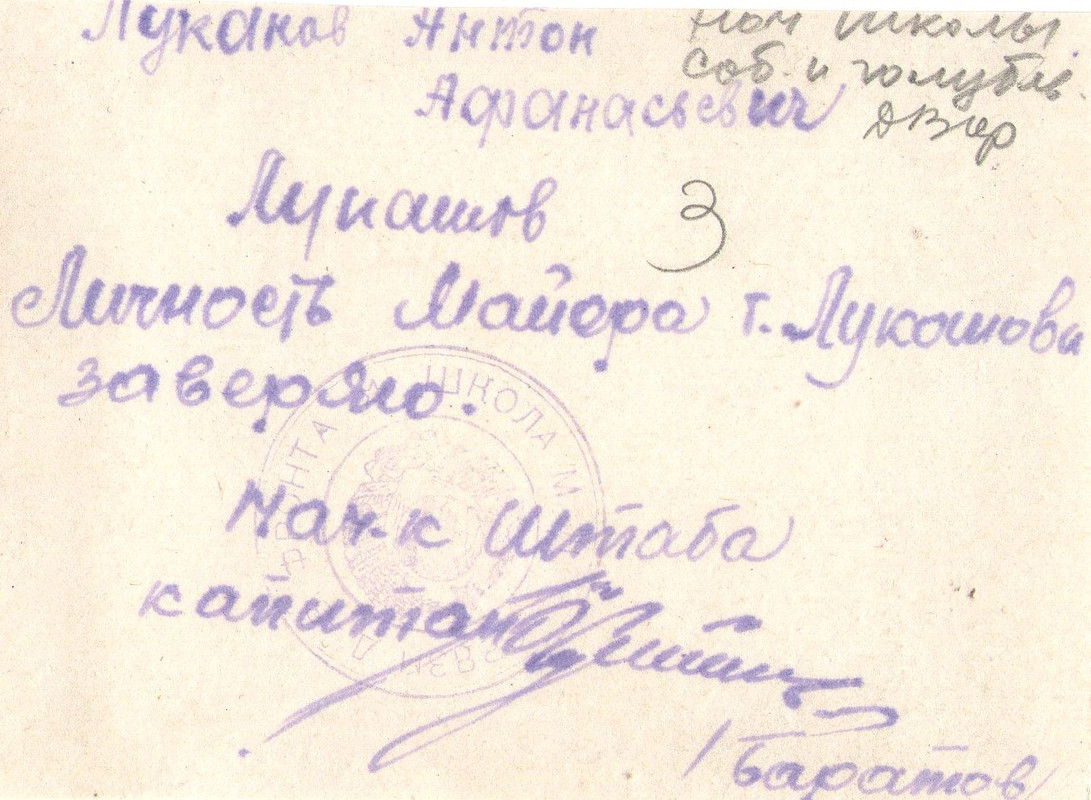 Луканов Антон
Афанасьевич
Нач школы
соб. и голубев.
ДВФ
Лукашов
3
Личность Майора т. Лукашова
заверяю.
Нач-к Штаба
капитан
/Баратов/
ФРОНТА
ШКОЛА М